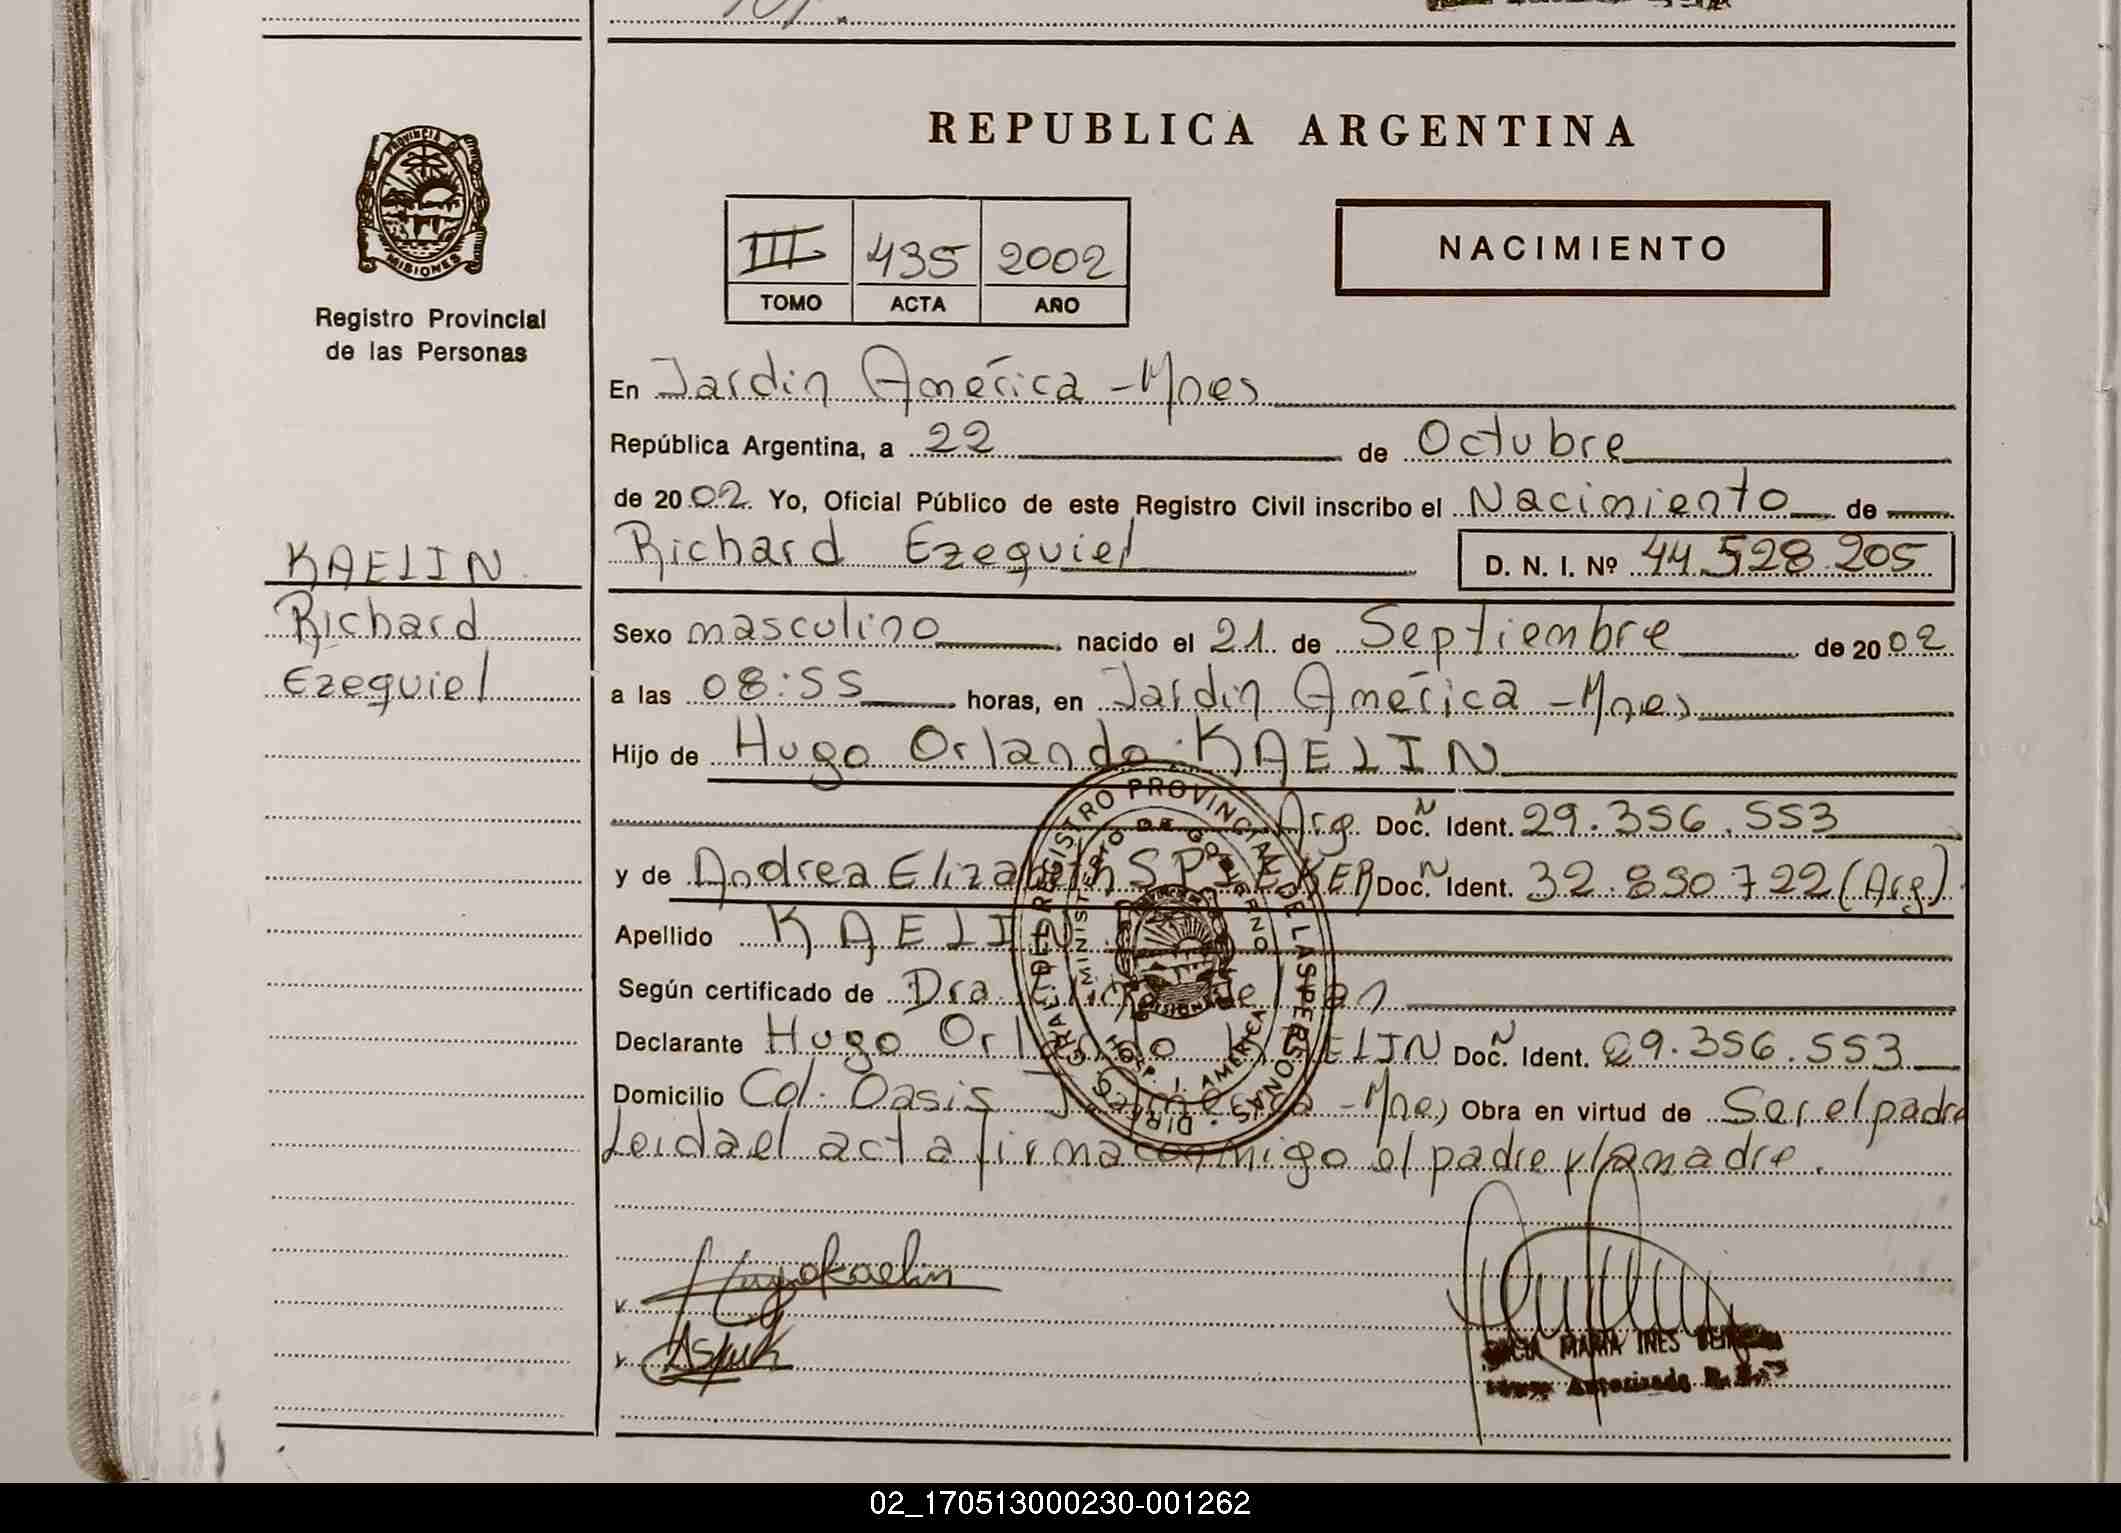 REPUBLICA ARGENTINA
PROVINCIA DE
MISIONES
Registro Provincial
de las Personas
III 435 2002
TOMO ACTA AÑO
NACIMIENTO
En Jardin América - Mnes
República Argentina, a 22 de Octubre
de 2002 Yo, Oficial Público de este Registro Civil inscribo el Nacimiento de
KAELIN
Richard
Ezequiel
Richard Ezequiel D. N. I. Nº 44.528.205
Sexo masculino nacido el 21 de Septiembre de 2002
a las 08:55 horas, en Jardin América - Mnes
Hijo de Hugo Orlando KAELIN
Arg. Doc. Ident. Nº 29.356.553
y de Andrea Elizabeth Doc. Nº Ident. 32.850.722 (Arg).
Apellido KAELIN
Según certificado de Dra.
Declarante Hugo Orlando KAELIN Doc. Nº Ident. 29.356.553
Domicilio Col. Oasis - Mnes Obra en virtud de Ser el padre
Leida el acta firma conmigo el padre y la madre.
DIREC. GRAL. DE REGISTRO PROVINCIAL DE LAS PERSONAS
MINISTERIO DE GOBIERNO
HOSP. J. AMERICA
MISIONES
Hugo Kaelin
MARIA INES
Autorizado
02_170513000230-001262